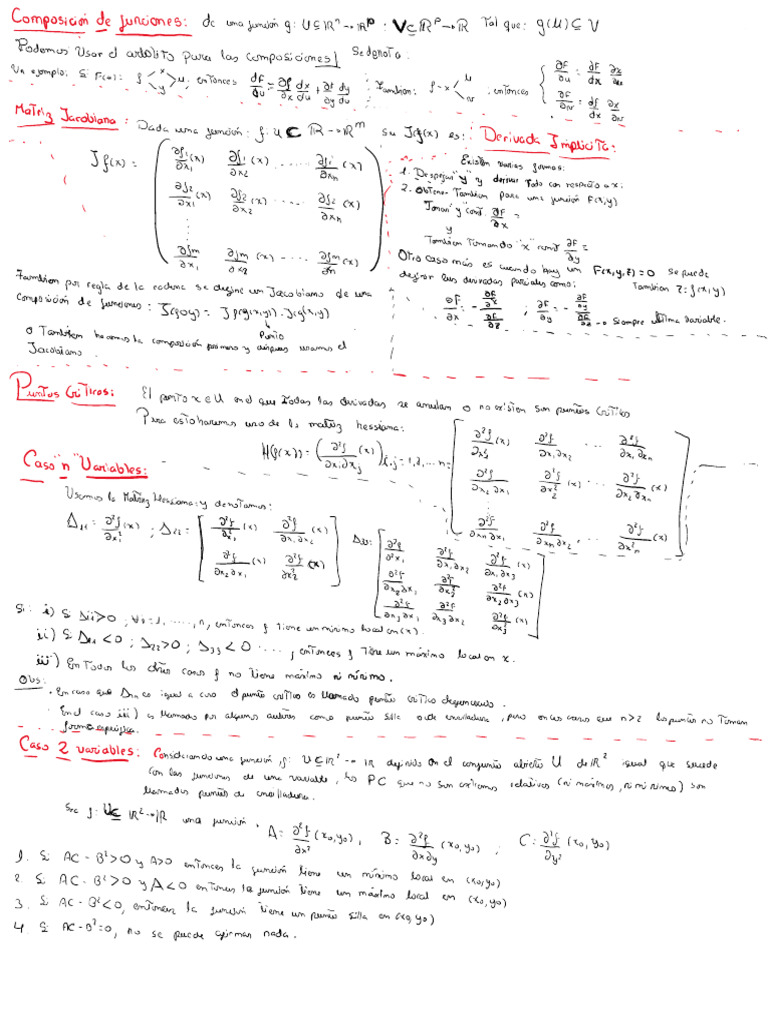 Composición de funciones: de una función g: U⊆ℝⁿ→ℝᵖ : V⊆ℝᵖ→ℝ Tal que: g(U)⊆V
Podemos usar el arbolito para las composiciones! Se denota:
Un ejemplo: Si F(u): f < x y > u, entonces df/du = ∂f/∂x dx/du + ∂f/∂y dy/du
Tambien: f - x < u v, entonces { ∂F/∂u : ∂F/dx ∂x/∂u
∂F/∂v : ∂f/dx ∂x/∂v
Matriz Jacobiana: Dada una función: f: U⊂ℝ→ℝᵐ su Jf(x) es:
Jf(x) = ( ∂f1/∂x1 (x) ∂f1/∂x2 (x) ..... ∂f1/∂xn (x)
∂f2/∂x1 (x) ∂f2/∂x2 (x) ..... ∂f2/∂xn (x)
∂fm/∂x1 ∂fm/∂x2 (x) ... ∂fm/∂n (x) )
Tambien por regla de la cadena se define un Jacobiano de una
composición de funciones: J(g∘γ) = Jf(g(x,y)).Jg(x,y)
Punto
o Tambien hacemos la composición primero y despues usamos el
Jacobiano.
Derivada Implicita:
Existen varias formas:
1. Despejar "y" y derivar todo con respecto a x:
2. Obtener Tambien para una función F(x,y)
Tomar "y" const. ∂F/∂x =
y
Tambien Tomando "x" const ∂F/∂y =
Otro caso más es cuando hay un F(x,y,z)=0 se puede
definir las derivadas parciales como: Tambien z=f(x,y)
∂F/∂x = - ∂F/∂x / ∂F/∂z ; ∂F/∂y = - ∂F/∂y / ∂F/∂z → Siempre ultima variable.
Puntos Criticos: El punto x∈U en el que todas las derivadas se anulan o no existen son puntos criticos
Para esto haremos uso de la matriz hessiana:
H(f(x)) = (∂²f/∂xi∂xj (x)) i,j=1,2,...n = [ ∂²f/∂x1² (x) ∂²f/∂x1∂x2 ... ∂²f/∂x1∂xn
∂²f/∂x2∂x1 ∂²f/∂x2² (x) ... ∂²f/∂x2∂xn (x)
∂²f/∂xn∂x1 ∂²f/∂xn∂x2 , ... ∂²f/∂x²n (x) ]
Caso "n" Variables:
Usamos la Matriz Hessiana y denotamos:
Δ11 = ∂²f/∂x1² (x) ; Δ22 = [ ∂²f/∂x1² (x) ∂²f/∂x1∂x2 (x)
∂²f/∂x2∂x1 (x) ∂²f/∂x2² (x) ]
Δ33: [ ∂²f/∂²x1 ∂²f/∂x1∂x2 (x) ∂²f/∂x1∂x3 (x)
∂²f/∂x2∂x1 ∂²f/∂x2² ∂²f/∂x2∂x3 (x)
∂²f/∂x3∂x1 ∂²f/∂x3∂x2 ∂²f/∂x3² (x) ]
Si: i) Si Δii>0 ; ∀i=1, ....., n, entonces f tiene un mínimo local en (x).
ii) Si Δ11<0 ; Δ22>0 ; Δ33<0 ....., entonces f tiene un máximo local en x.
iii) En todos los otros casos f no tiene máximo ni mínimo.
Obs: . En caso que Δnn es igual a cero el punto critico es llamado punto critico degenerado.
. En el caso iii) es llamado por algunos autores como punto silla o de ensilladura, pero en los casos que n>2 los puntos no toman
forma específica.
Caso 2 variables: Considerando una función f: U⊆ℝ²→ℝ definido en el conjunto abierto U de ℝ² igual que sucede
con las funciones de una variable, los PC que no son extremos relativos (ni máximos, ni mínimos) son
llamados puntos de ensilladura.
Sea f: U⊆ℝ²→ℝ una función A = ∂²f/∂x² (x0,y0), B = ∂²f/∂x∂y (x0,y0) ; C: ∂²f/∂y² (x0,y0)
1. Si AC - B²>0 y A>0 entonces la función tiene un mínimo local en (x0,y0)
2. Si AC - B²>0 y A<0 entonces la función tiene un máximo local en (x0,y0)
3. Si AC - B²<0, entonces la función tiene un punto silla en (x0,y0)
4. Si AC-B²=0, no se puede afirmar nada.